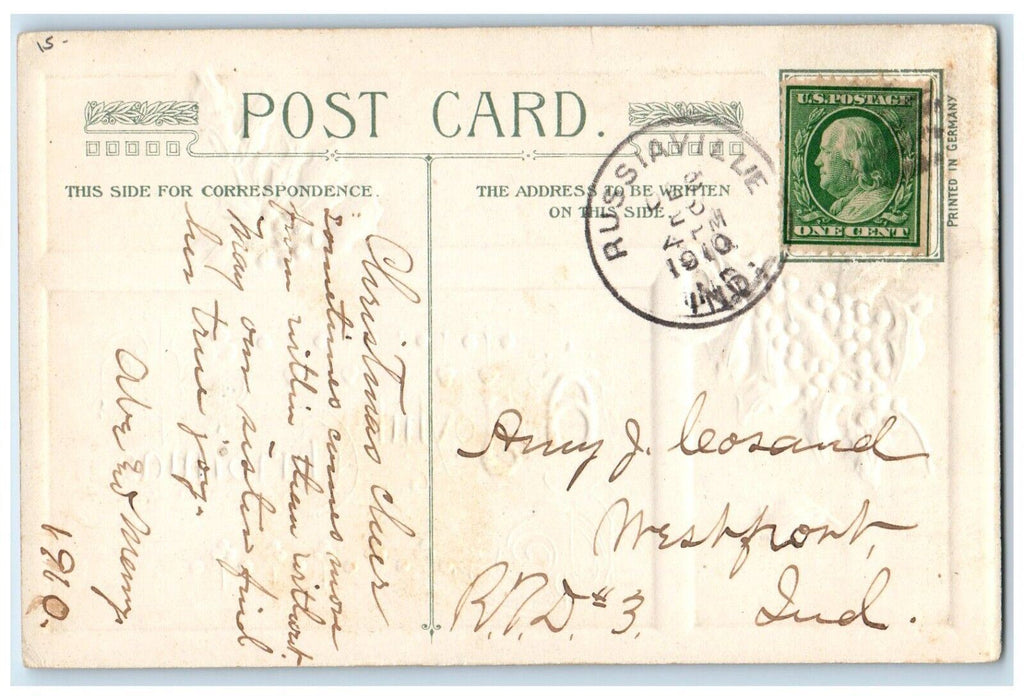 15-
POST CARD.
THIS SIDE FOR CORRESPONDENCE.
THE ADDRESS TO BE WRITTEN
ON THIS SIDE.
U.S. POSTAGE
ONE CENT
PRINTED IN GERMANY
RUSSIAVILLE
DEC
PM
1910
IND.
Christmas cheer
sometimes comes more
from within than without.
May our sister find
her true joy.
Abe and Mamy
1910.
Amy J. Cosand
Westfront,
R.F.D. #3. Ind.